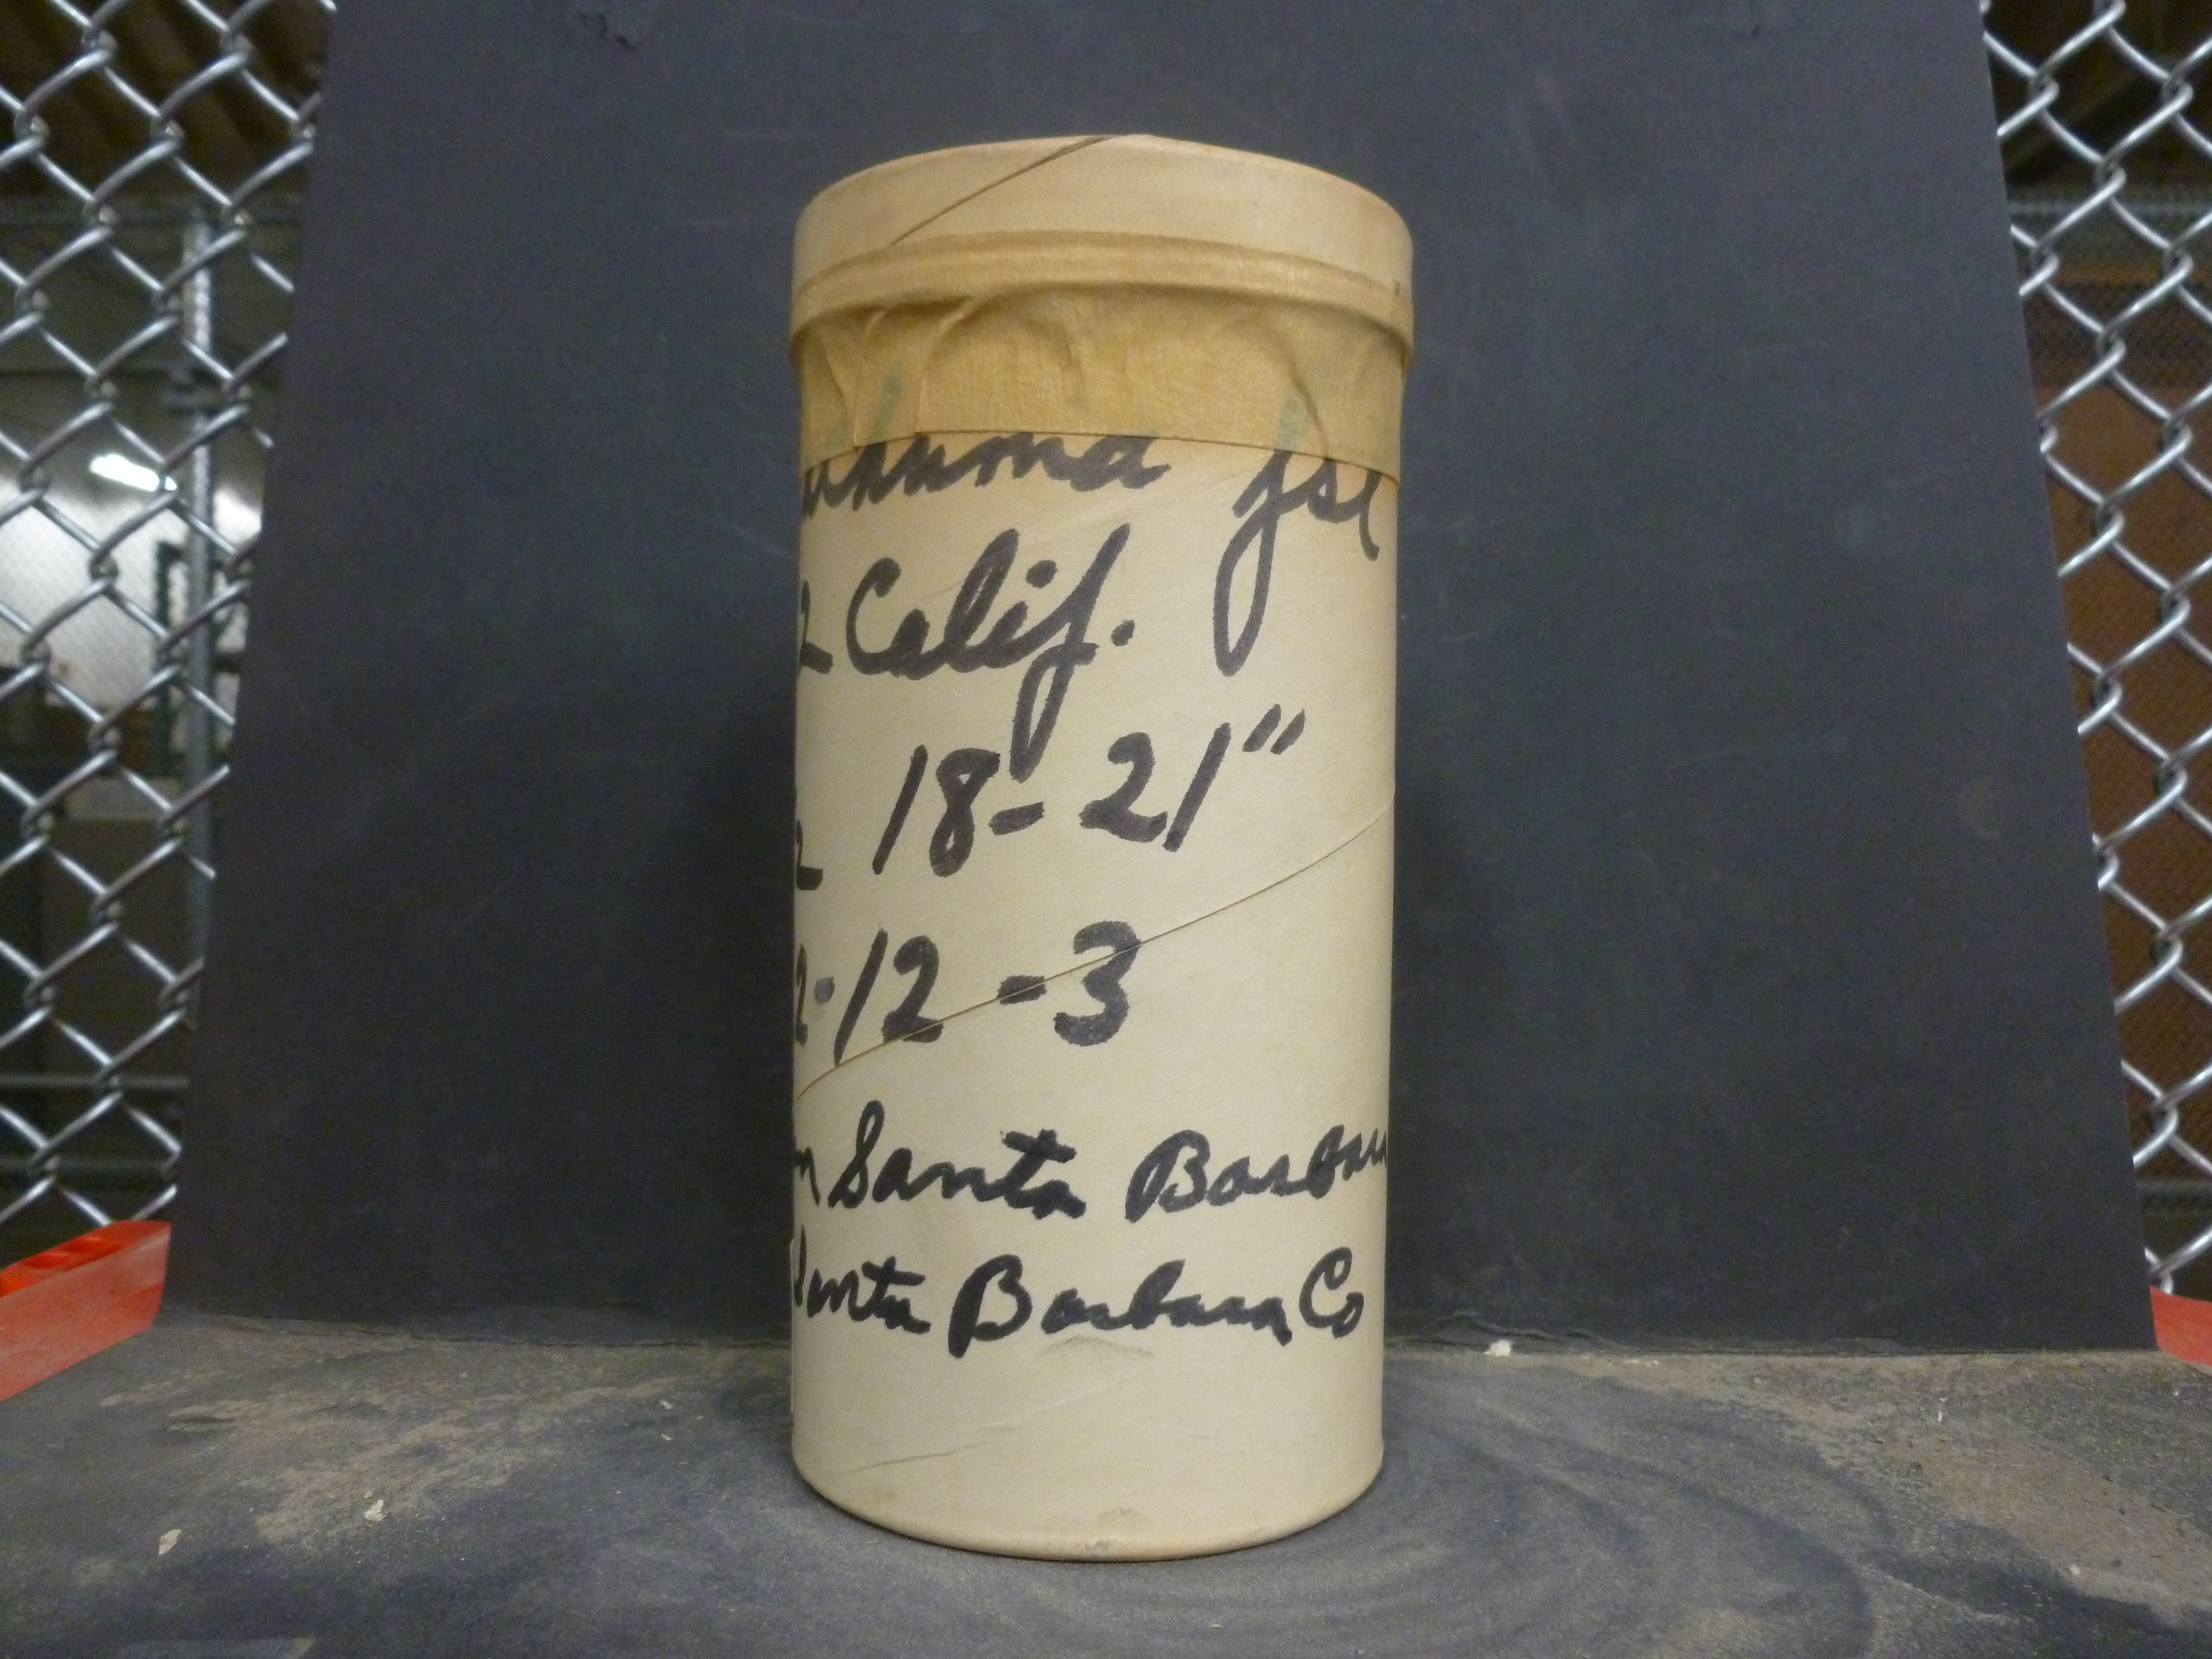 fsl
2 Calif.
2 18-21"
2-12-3
Santa Barbara
Santa Barbara Co